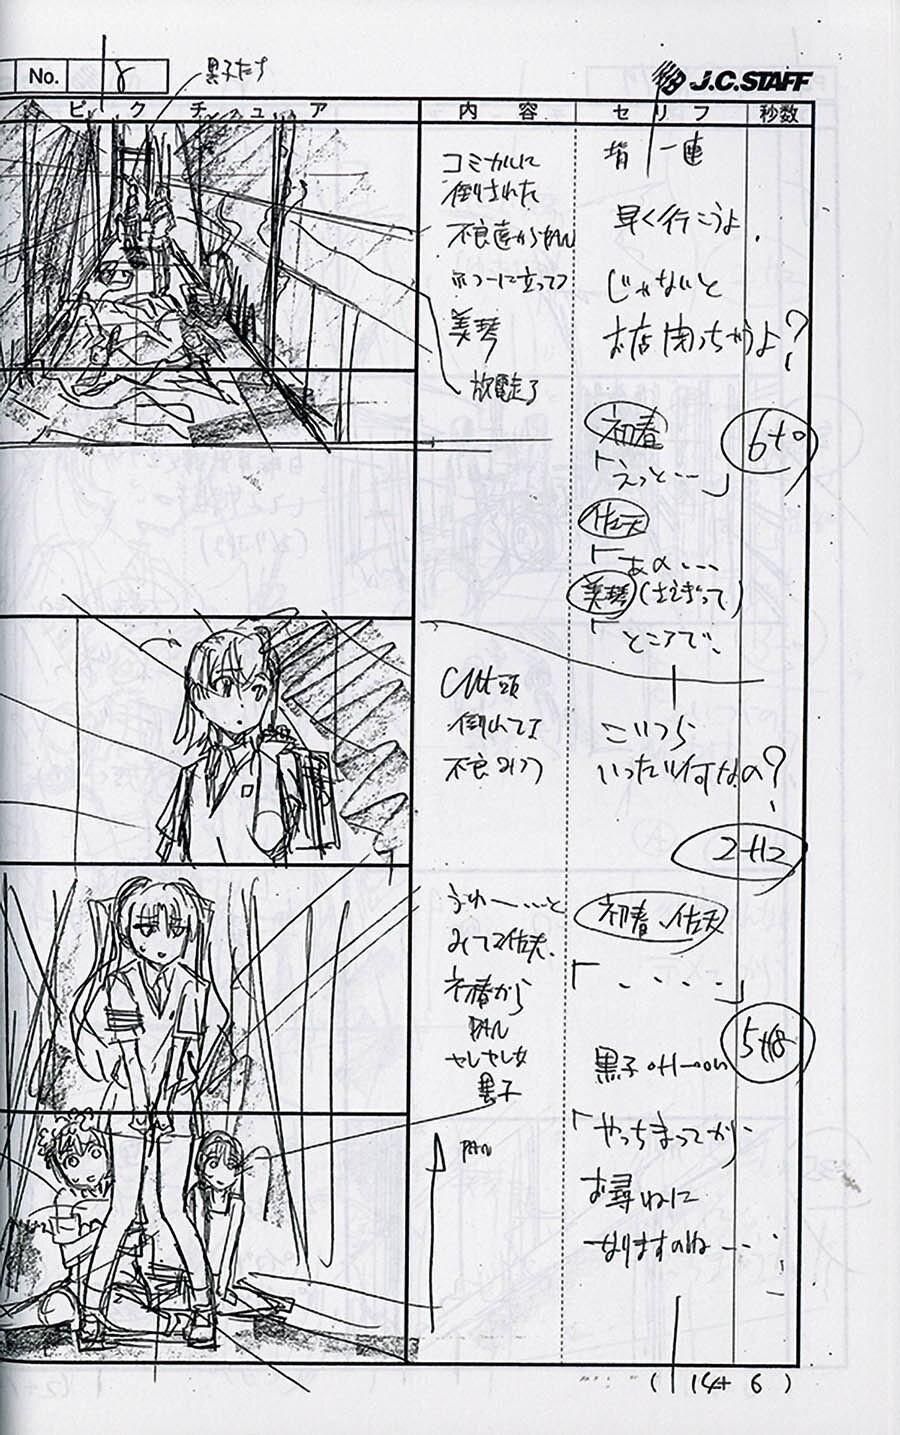 No. 8
黒子たち
J.C.STAFF
ピクチュア 内容 セリフ 秒数
コミカルに
倒された
不良達から PAN
フツーに立ってる
美琴
放電走る
早く行こうよ
じゃないと
お店閉っちゃうよ?
初春
「えっと…」
6+0
佐天
「あの…
美琴(さえぎって)
「ところで、
Cut頭
不良
こいつら
いったい何なの?
2+12
うわー…と
みてる佐天、
初春から
PAN
ヤレヤレな
黒子
PAN
初春、佐天
「・・・・」
5+18
黒子
「やっちまってから
お尋ねに
なりますのね…
(14+6)